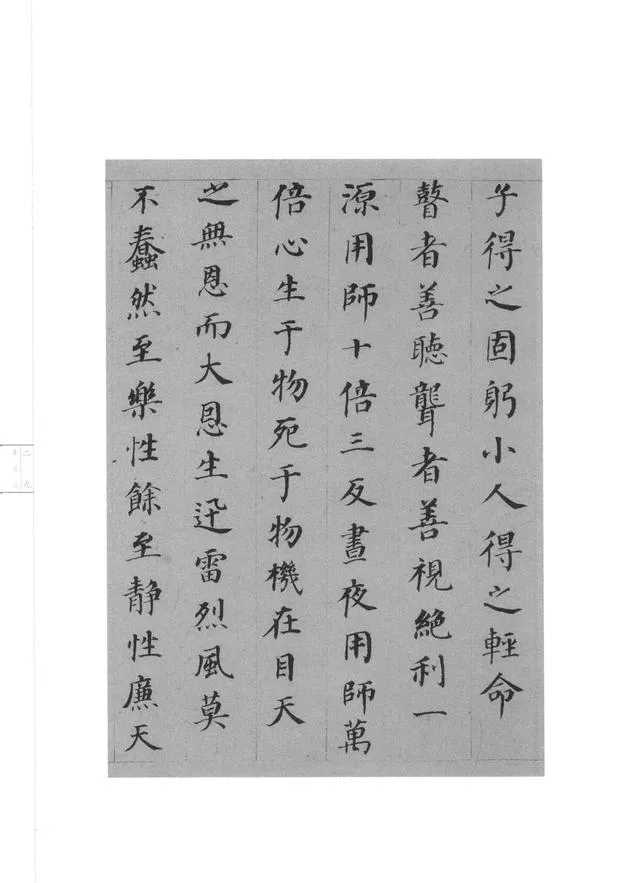 子得之固躬小人得之輕命
瞽者善聽聾者善視絕利一
源用師十倍三反晝夜用師萬
倍心生于物死于物機在目天
之無恩而大恩生迅雷烈風莫
不蠢然至樂性餘至靜性廉天